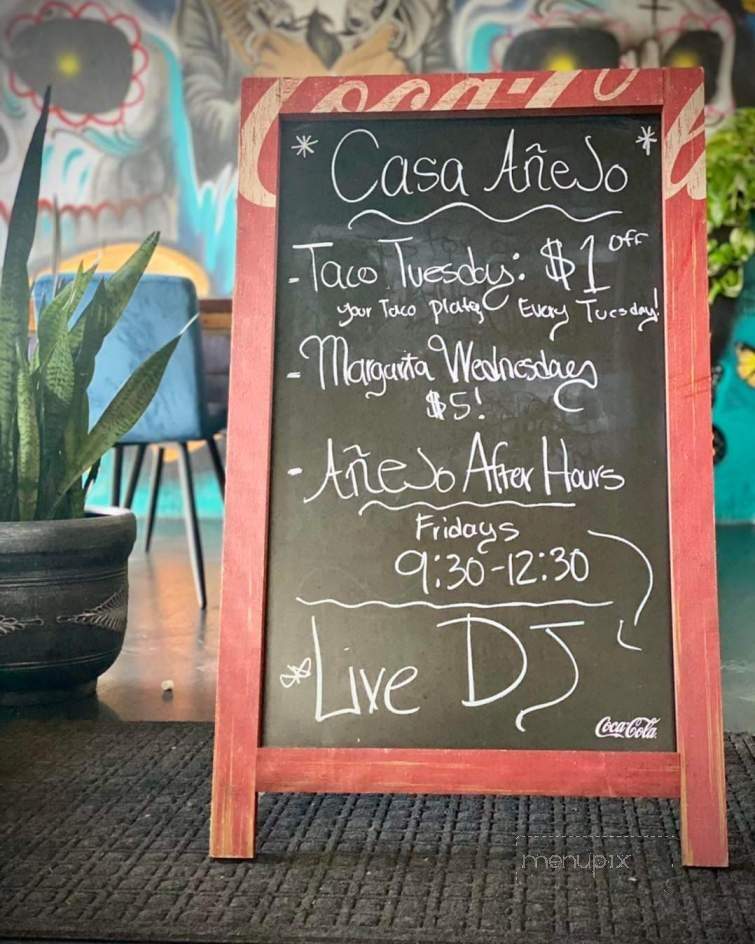 Coca-Cola
* Casa Añejo *
- Taco Tuesday: $1 off
your Taco plates Every Tuesday!
- Margarita Wednesdays
$5!
- Añejo After Hours
Fridays
9:30-12:30
Live DJ
Coca-Cola
menupix